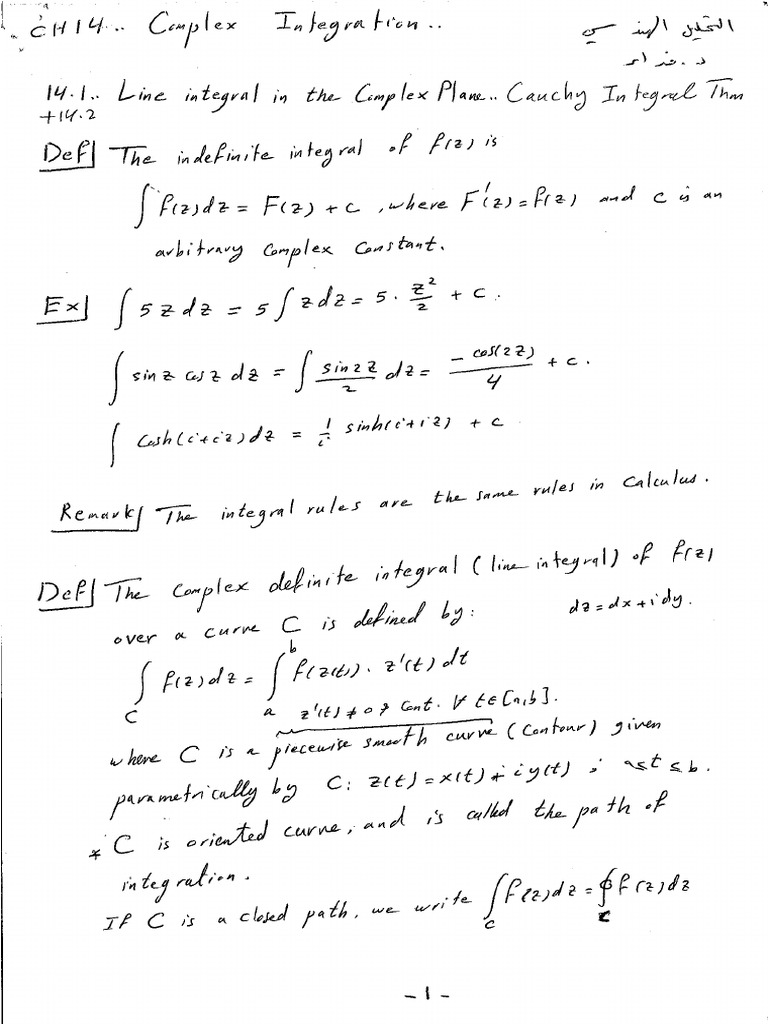 CH14.. Complex Integration..
التحليل الهندسي
د.
14.1.. Line integral in the Complex Plane.. Cauchy Integral Thm
+14.2
Def| The indefinite integral of f(z) is
∫ f(z)dz = F(z) + c , where F'(z) = f(z) and c is an
arbitrary complex constant.
Ex| ∫ 5z dz = 5 ∫ z dz = 5 · z²/2 + c.
∫ sin z cos z dz = ∫ sin2z/2 dz = -cos(2z)/4 + c.
∫ cosh(i+iz)dz = 1/i sinh(i+iz) + c
Remark| The integral rules are the same rules in Calculus.
Def| The Complex definite integral (line integral) of f(z)
over a curve C is defined by: dz = dx + i dy.
∫_C f(z)dz = ∫_a^b f(z(t)). z'(t) dt
z'(t) ≠ 0 & Cont. ∀ t ∈ [a,b].
where C is a piecewise smooth curve (Contour) given
parametrically by C: z(t) = x(t) + i y(t) ; a ≤ t ≤ b.
* C is oriented curve, and is called the path of
integration.
If C is a closed path, we write ∫_C f(z)dz = ∮_C f(z)dz
-1-